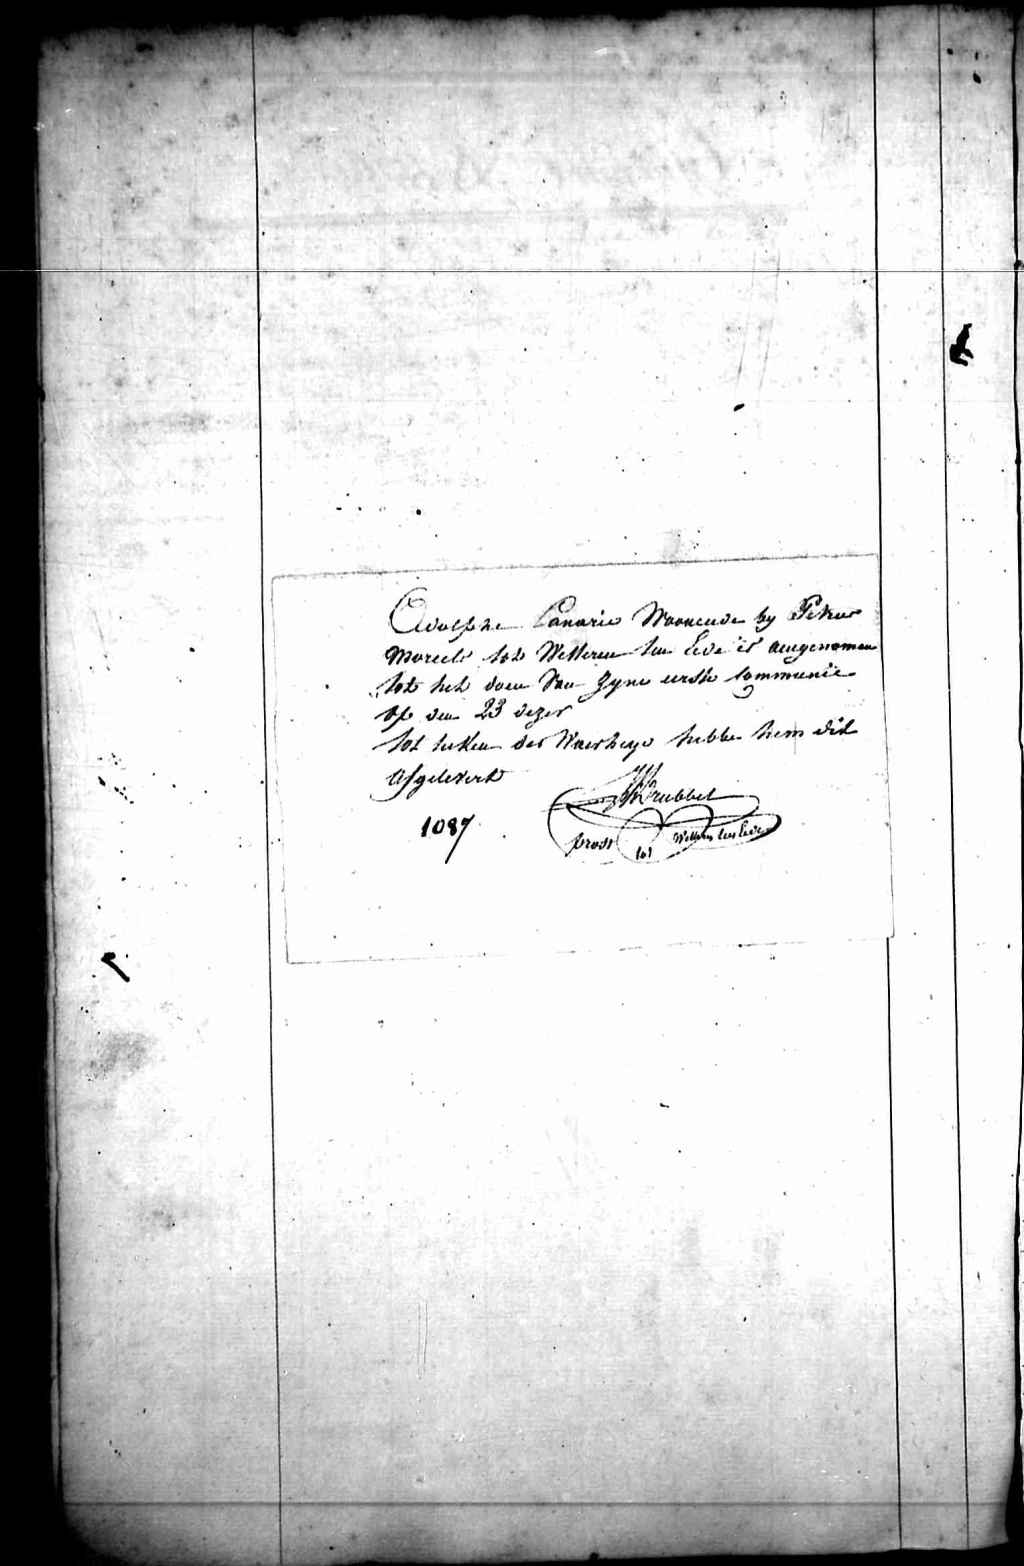 Adolphe Canarie Woonende by Petrus
Moreels tot Wetteren ten Ede is aengenomen
tot het doen van zyne erste Communie
op den 23 dezer
tot teken der Waerheyd hebbe hem dit
afgelevert
prost tot Wetteren ten Ede
1087